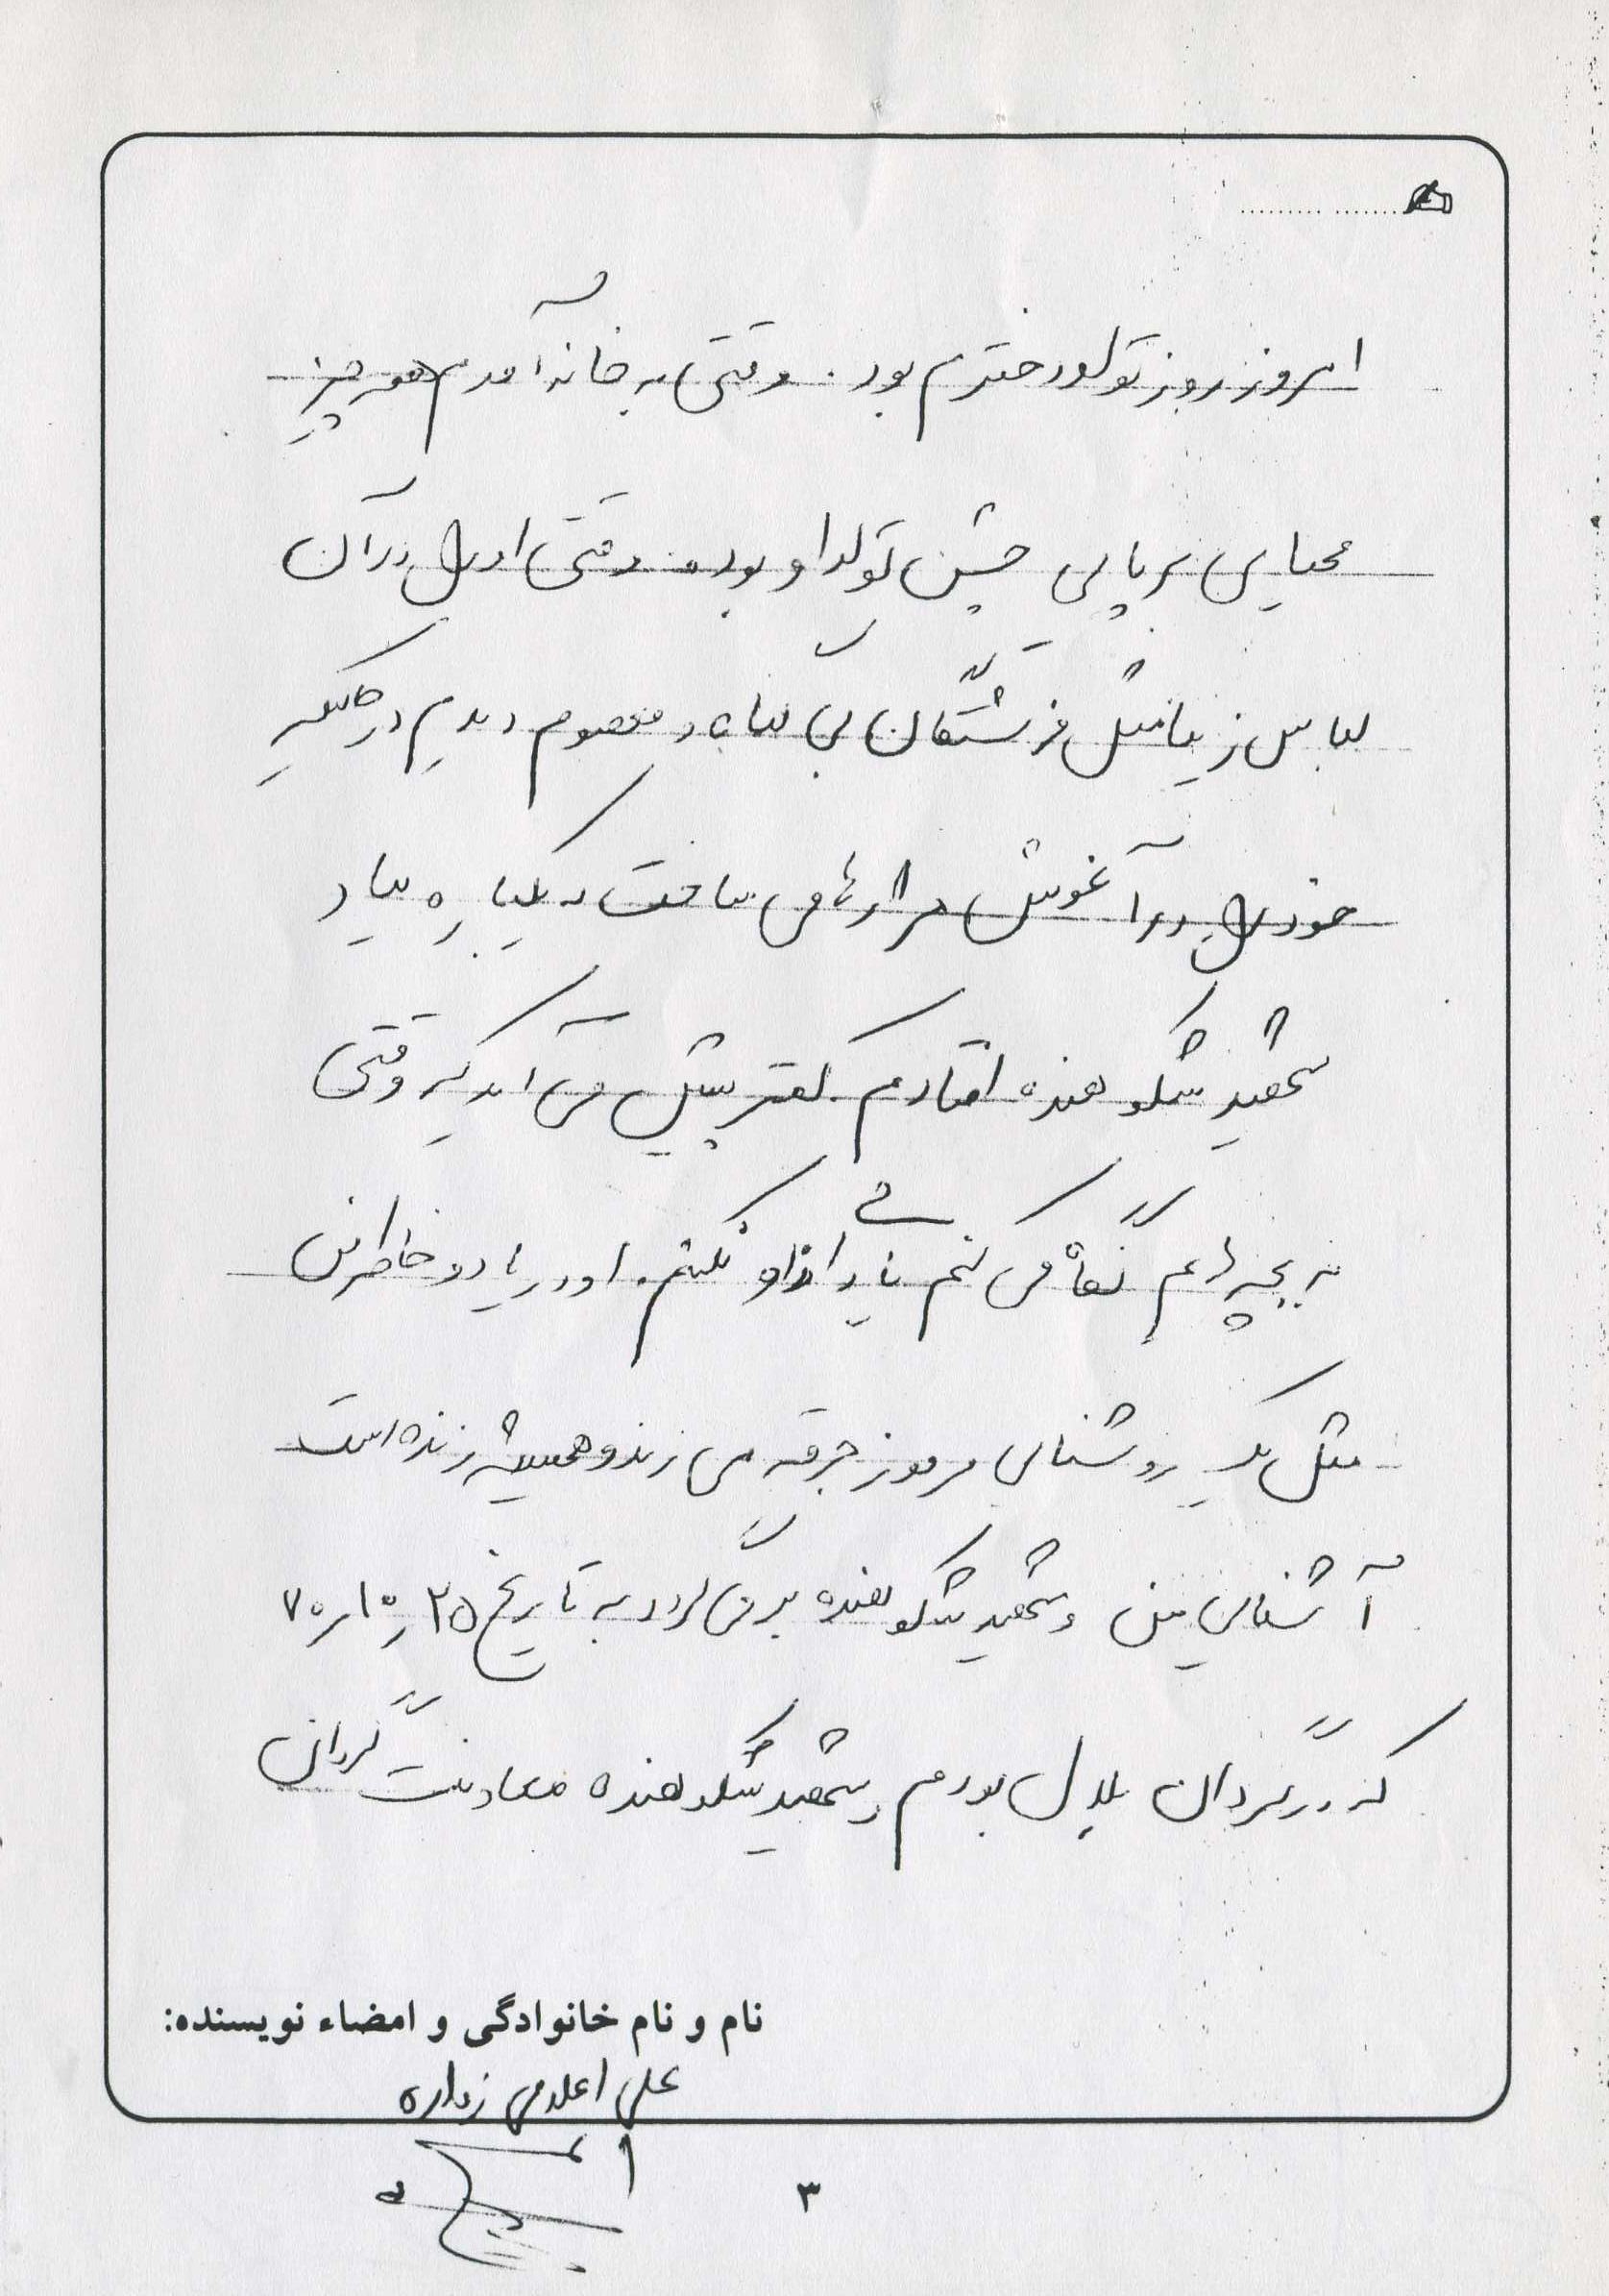 امروز روز تولد دخترم بود. وقتی به خانه آمدم همه چیز
محیای برپایی جشن تولد او بود. وقتی او را در آن
لباس زیبا مثل فرشتگان بی گناه و معصوم دیدم در حالیکه
خودش را در آغوش من رها می ساخت به یکباره بیاد
شهید شکوهنده افتادم. کمتر پیش می آید که وقتی
به بچه هایم نگاه می کنم یادی از او نکنم. او در یاد و خاطر من
مثل یک روشنایی مرموز جرقه می زند و همیشه زنده است
آشنایی من و شهید شکوهنده برمی گردد به تاریخ ۷۰/۱۰/۲۵
که در گردان بلال بودم و شهید شکوهنده معاونت گردان
نام و نام خانوادگی و امضاء نویسنده:
علی اعلامی زواره
۳